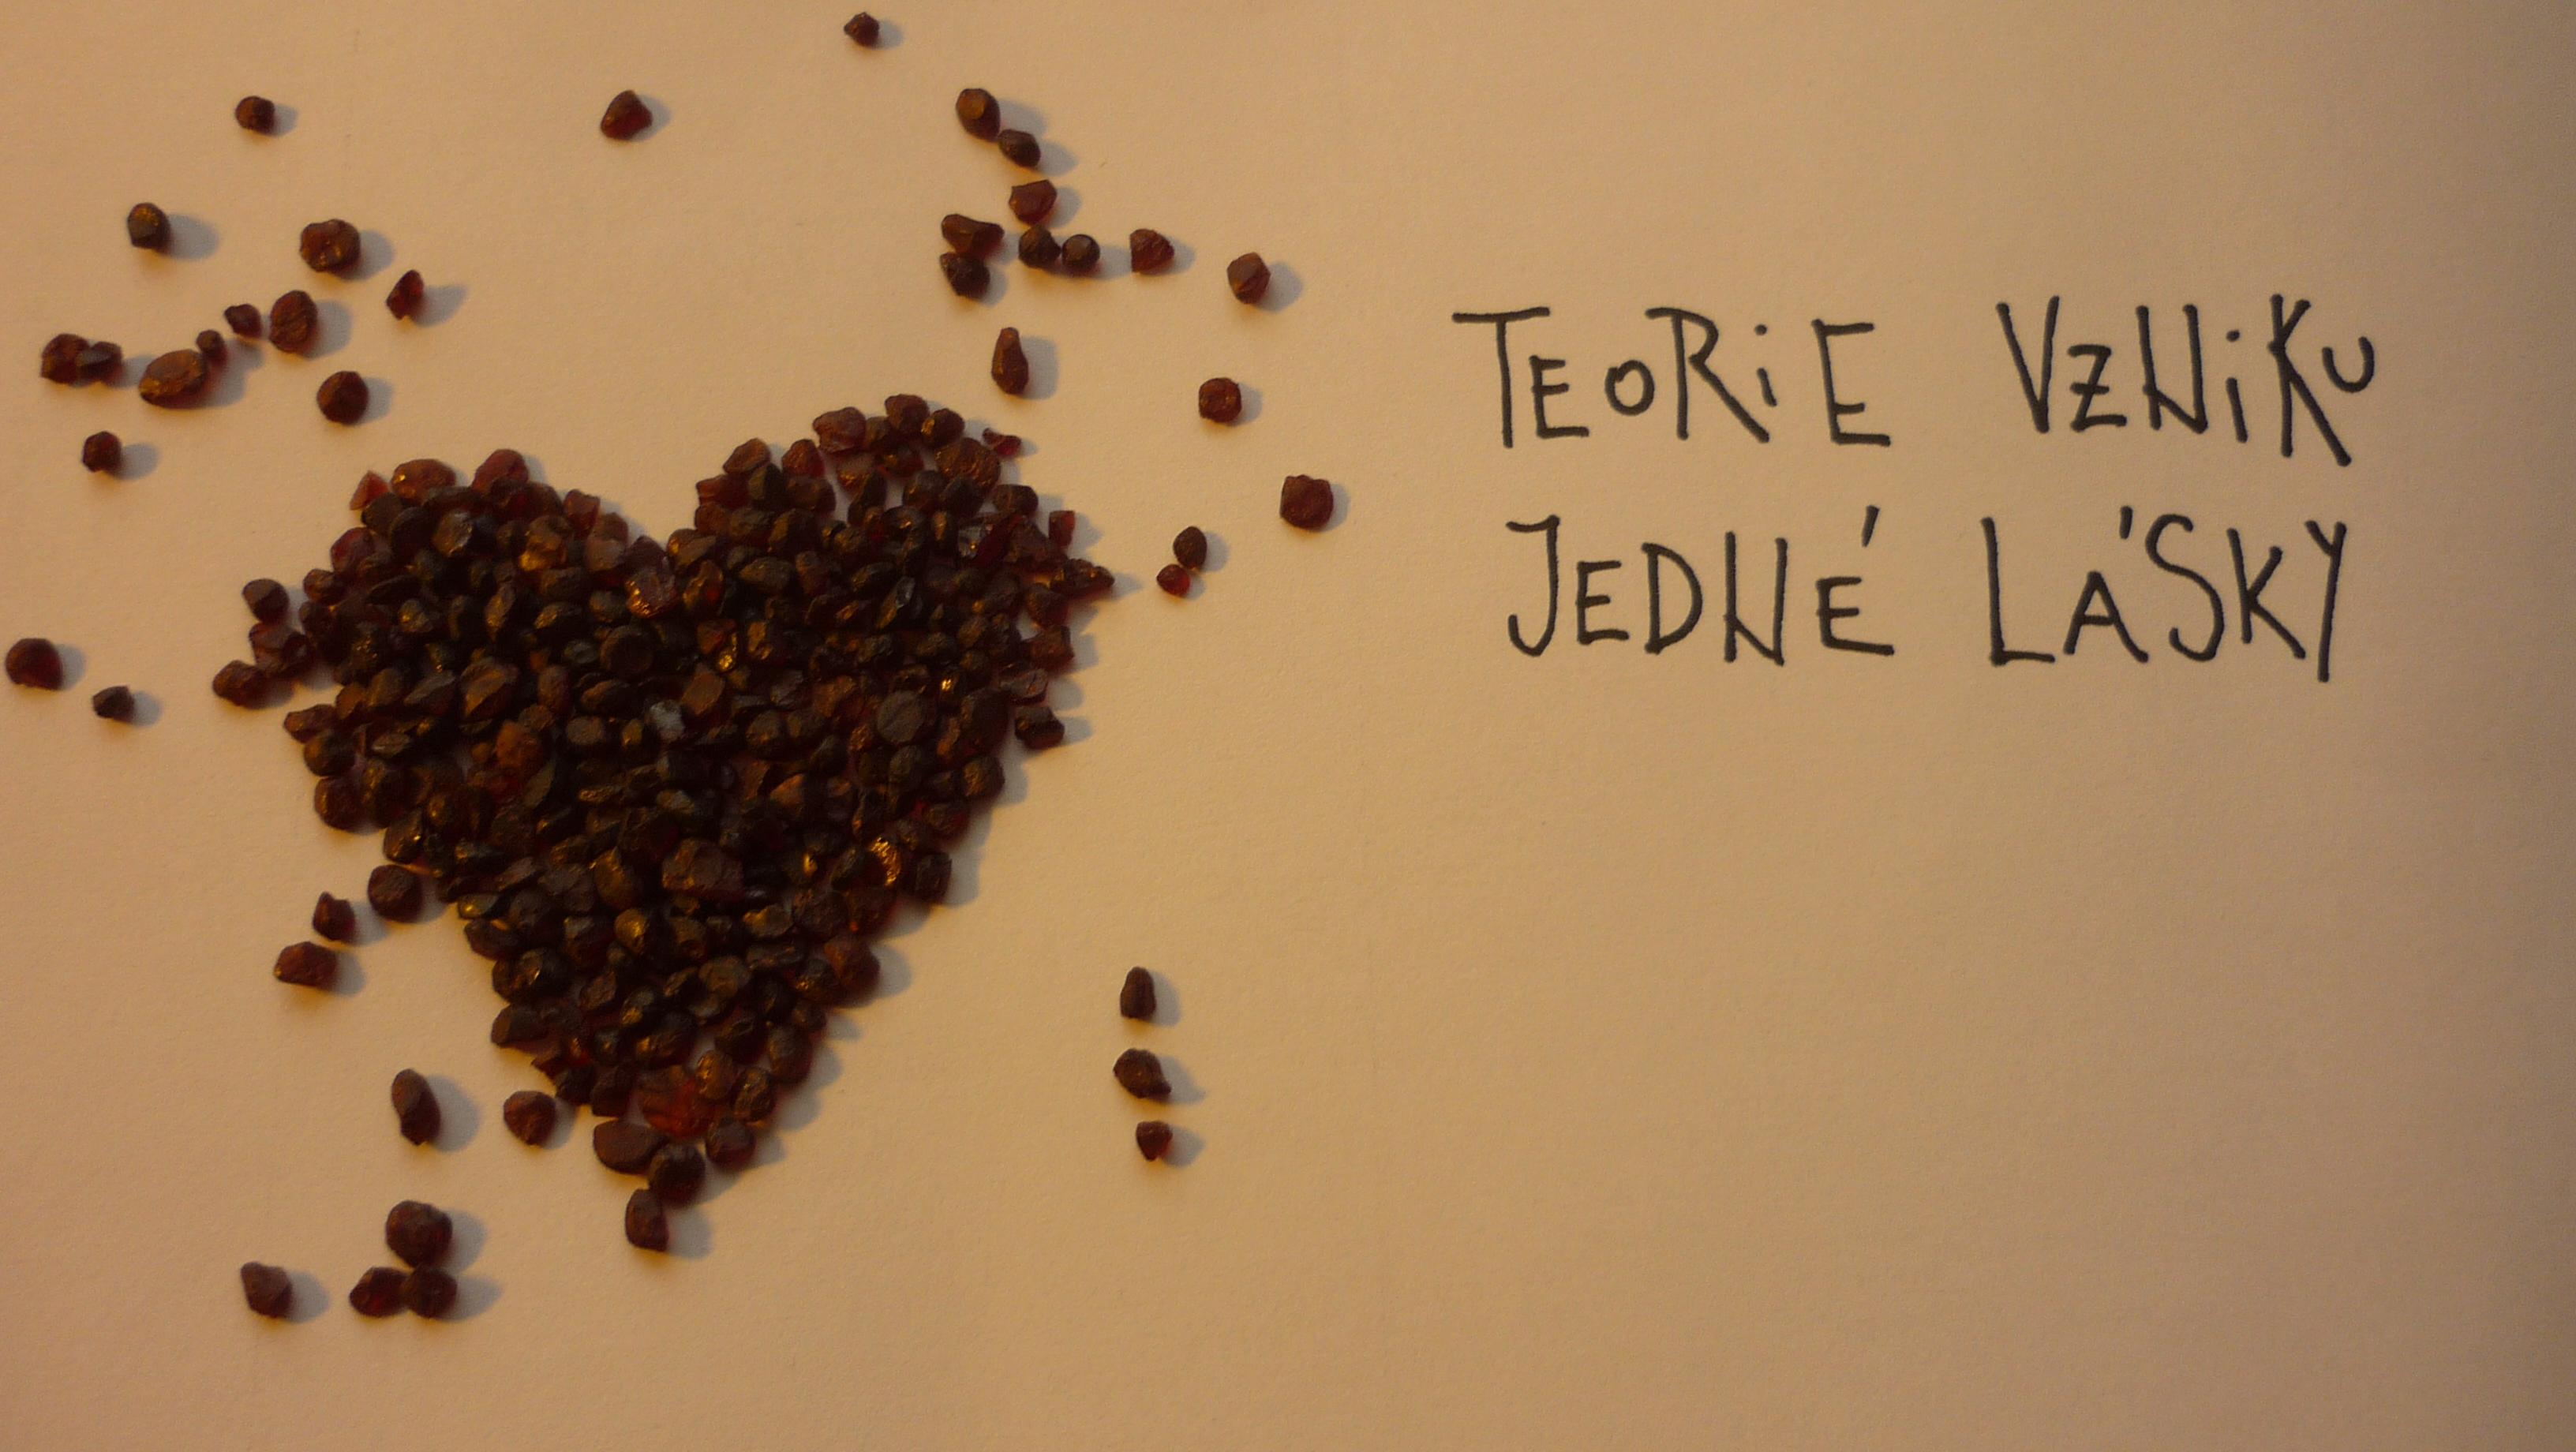 TEORiE VZNiKU
JEDNÉ LÁSKY